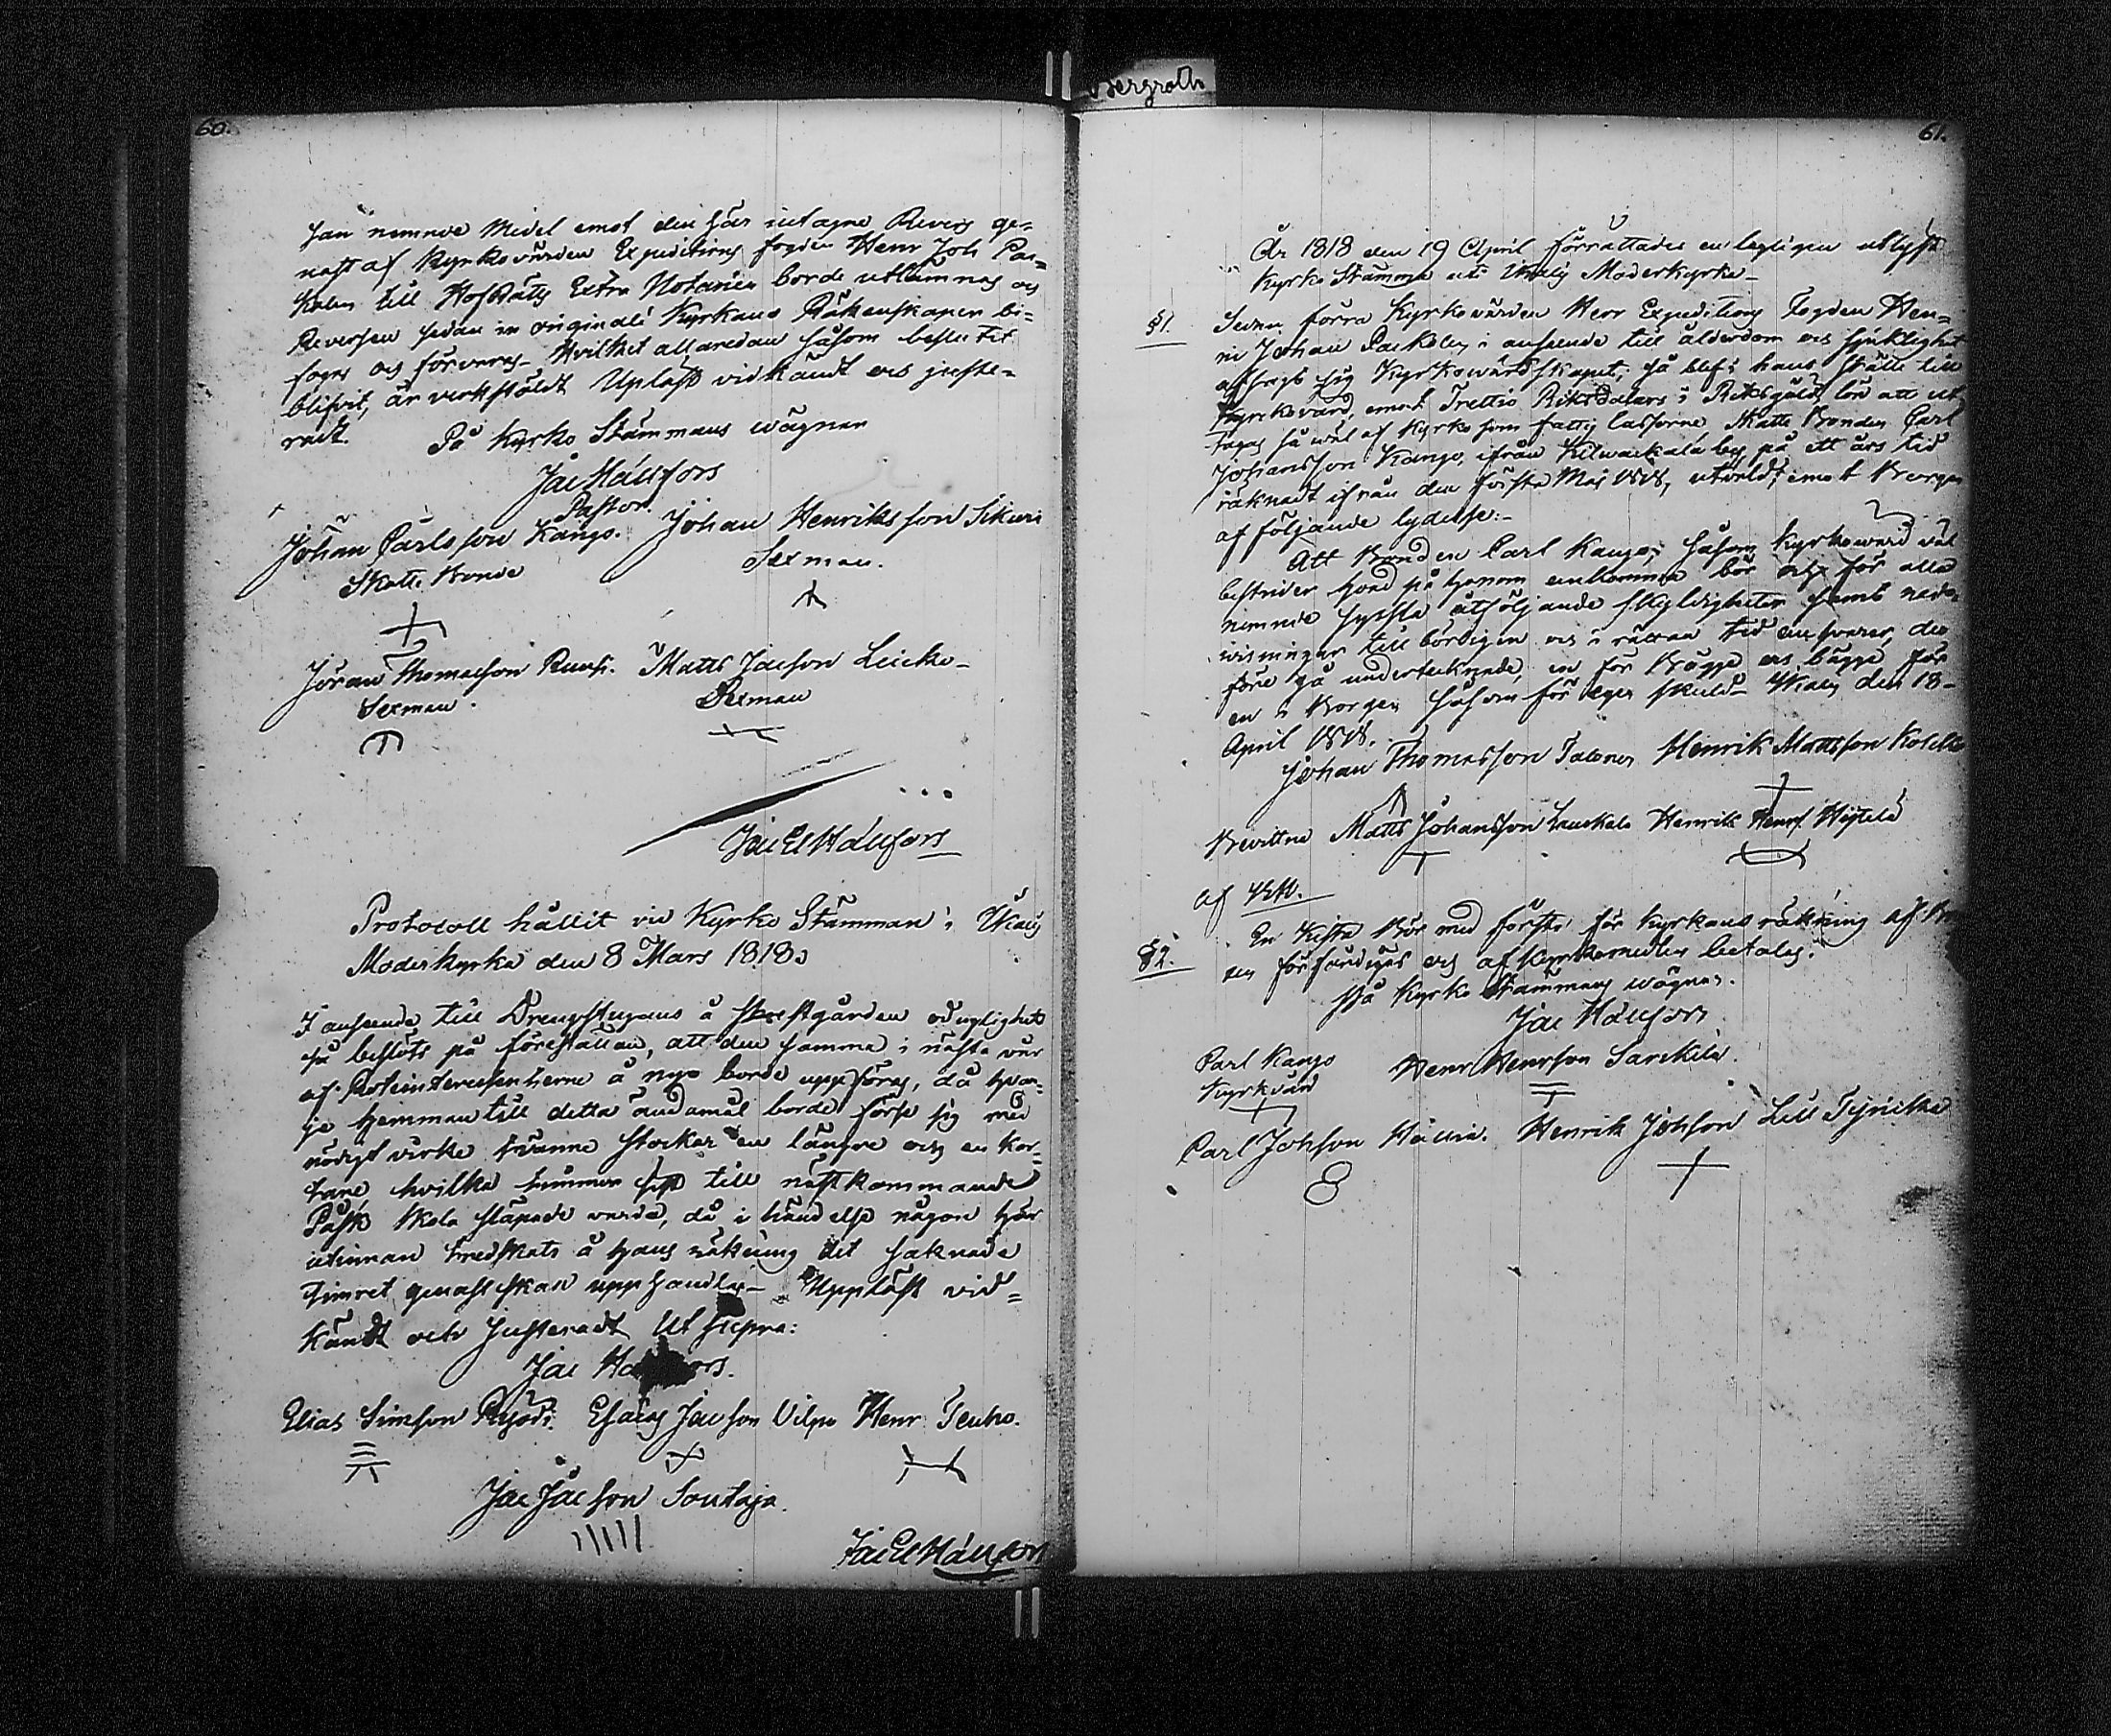 Bergroth
60.
han nämnde Medel emot den här intagne Revers ge=
nast af Kyrkovärden Expeditions fogden Henr Joh Pac=
kalen till HofRätts Extra Notarien borde utlämnas och
Reversen sedan in originali Kyrkans Räkenskaper bi=
fogas och förvaras. Hvilket allaredan såsom beslutit
blifvit, är verkstäldt Upläst vidkändt och juste=
radt.
På Kyrko Stämmans wägnar
Jac Hällfors
Pastor.
Johan Carlsson Kango. Johan Henriksson Sikuri
Skatte Bonde Sexman.
Jöran Thomasson Matts Jacsson
Sexman. Sexman
Jac El Hällfors
Protocoll hållit vid Kyrko Stämman i
Moderkyrka den 8 Mars 1818.
I anseende till Drengstugans å prestgården oduglighet
så beslöts på föreställan, att den samma i nästa vår
af å nyo borde uppföras, då hvar=
je hemman till detta ändamål borde förse sig med
nödigt virke tvänne stockar en längre och en kor=
tare, hvilka timmer sist till nästkommande
Påsk skola släpade warda, då i händelse någon här
utinnan tredskats å hans räkning det saknade
timret genast skall upphandlas. Uppläst vid=
kändt och Justeradt Ut supra:
Jac Hällfors.
Elias Simsson Esaias Jacsson Vilpu Henr
Jac Jacsson Soutaja.
Jac El Hällfors
61.
År 1818 den 19 April förrättades en lagligen utlyst
Kyrko Stämma uti Moderkyrka.
§1. Sedan förra Kyrkovärden Herr Expeditions Fogden Hen=
ric Johan Packalen i anseende till ålderdom och sjuklighet
afsagt sig Kyrkowärdskapet, så blef i hans ställe till
Kyrkovärd, emot Trettio Riksdalers i Riksgälds lön att ut
tagas så wäl af Kyrko som fattig cassorne Skatte Bonden Carl
Johansson Kango, ifrån by på ett års tid
räknadt ifrån den första Maj 1818, utvald; emot Borgen
af följande lydelse:
Att Bonden Carl Kango, såsom Kyrkowärd väl
bestrider hvad på honom ankomma bör och för alla
nämnde syssla åtföljande skyldigheter samt redo=
wisningar till börligen och i rättan tid ansvarar, der
före gå undertecknade, en för bägge och bägge för
en i Borgen såsom för egen skuld den 18
April 1818.
Johan Thomasson Henrik Mattsson
Bevittna Matts Johansson Henrik Henrs.
af
§2. En Kista Bör med första för Kyrkans räkning
förfärdigas och af Kyrkomedlen betalas.
På Kyrko Stämmans wägnar.
Jac Hällfors
Carl Kango Henr Henrsson
Kyrkvärd
Carl Johsson Henrik Johsson Lill